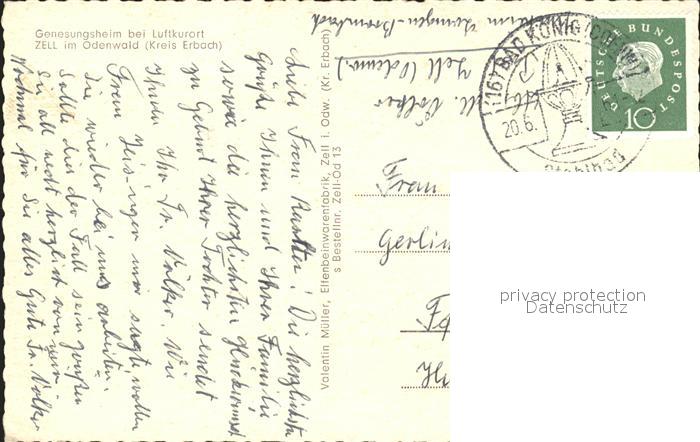 Genesungsheim bei Luftkurort
ZELL im Odenwald (Kreis Erbach)
Liebe Frau
Die herzlichsten
Grüße Ihnen und Ihrer Familie
sowie die herzlichsten Glückwünsche
zur Geburt Ihrer Tochter sendet
Ihnen Ihr Fr. Völker. Wie
Frau mir sagte, wollen
Sie wieder bei uns arbeiten.
Sollte dies der Fall sein grüßen
Sie all recht herzlich von mir.
Nochmal für Sie alles Gute Fr. Völker
Valentin Müller, Elfenbeinwarenfabrik, Zell i. Odw. (Kr. Erbach)
s Bestellnr. Zell-Od 13
Zell (Odenw.)
Völker
(16) BAD KÖNIG (ODENW)
20.6.
Stahlbad
DEUTSCHE BUNDESPOST
10
Frau
Gerlin
privacy protection
Datenschutz